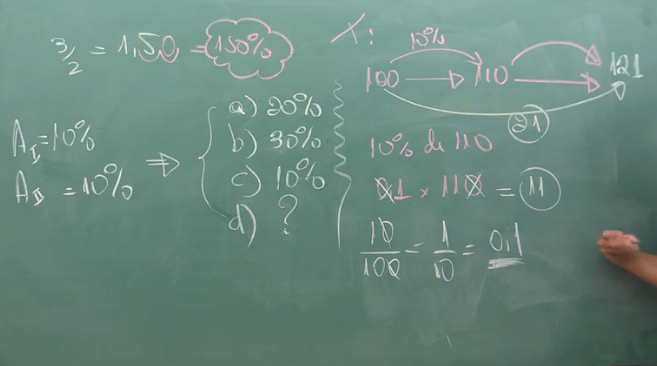 3/2 = 1,50 = 150%
A I = 10%
A II = 10%
⇒
a) 20%
b) 30%
c) 10%
d) ?
10%
100 → 110 → 121
21
10% de 110
01 × 110 = 11
10/100 = 1/10 = 0,1